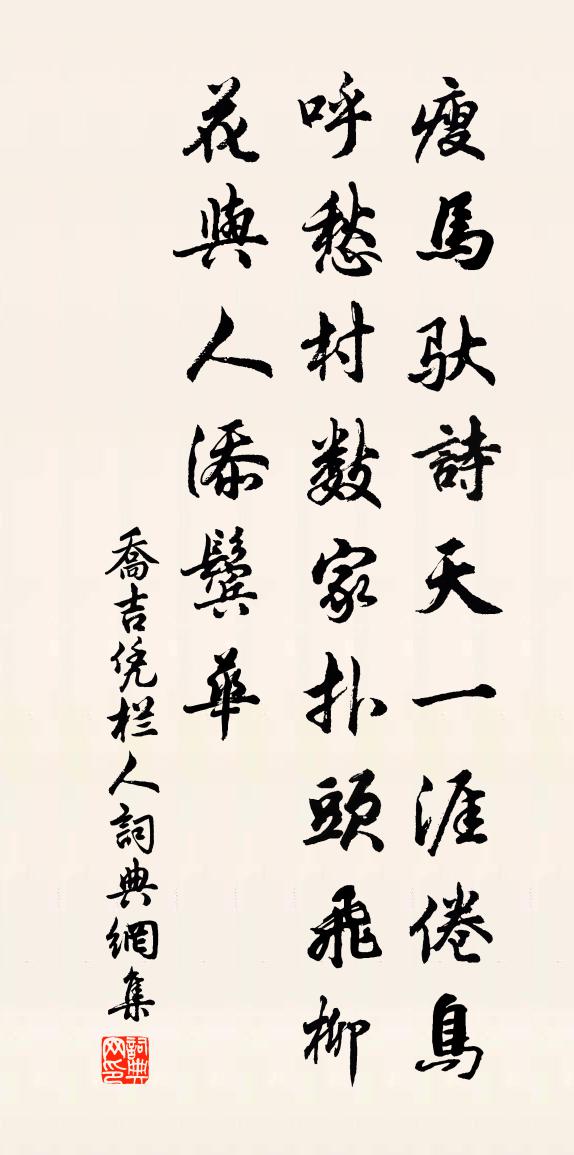 瘦馬馱詩天一涯倦鳥
呼愁村數家扑頭飛柳
花與人添鬢華
喬吉凭栏人詞典網集
詞典网印